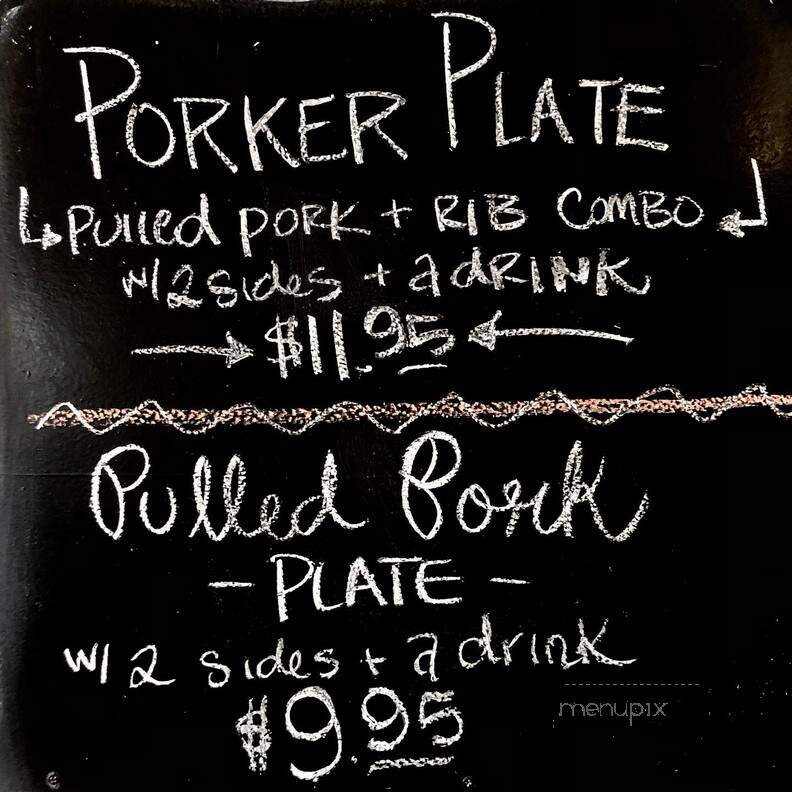 PORKER PLATE
PULLED PORK + RIB COMBO
w/ 2 sides + a DRINK
$11.95
Pulled Pork
- PLATE -
w/ 2 sides + a drink
$9.95
menupix